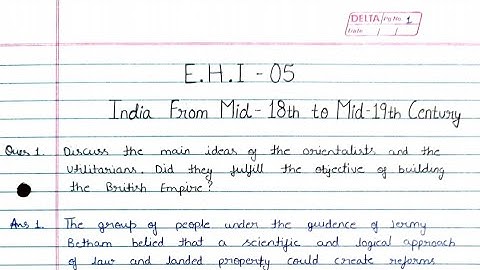 DELTA Pg No. 1
Date / /
E.H.I - 05
India From Mid-18th to Mid-19th Century
Ques 1. Discuss the main ideas of the orientalists and the
utilitarians. Did they fulfill the objective of building
the British Empire?
Ans 1. The group of people under the guidence of Jermy
Betham belied that a scientific and logical approach
of law and landed property could create reforms